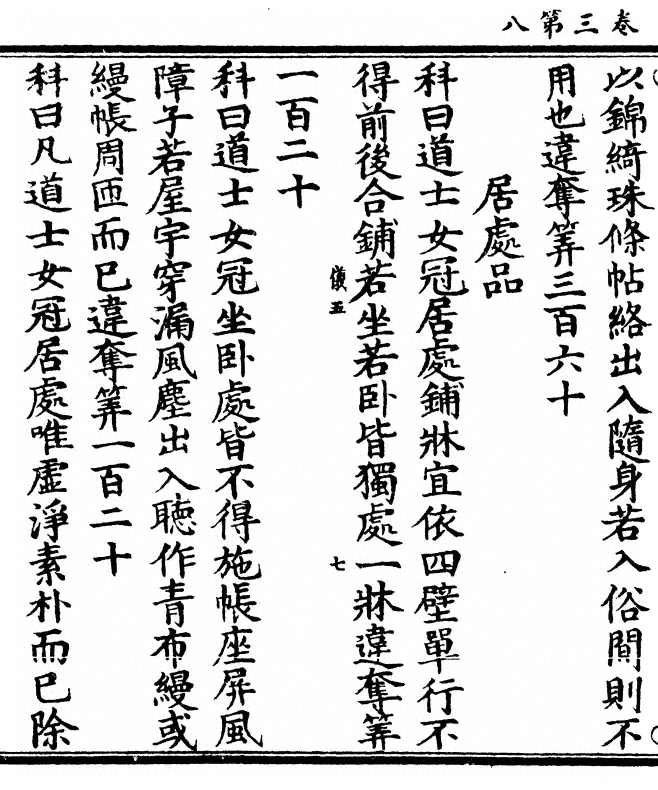 卷三第八
以錦綺珠條帖絡出入隨身若入俗間則不
用也違奪筭三百六十
居處品
科曰道士女冠居處鋪牀宜依四壁單行不
得前後合鋪若坐若卧皆獨處一牀違奪筭
儀五
七
一百二十
科曰道士女冠坐卧處皆不得施帳座屏風
障子若屋宇穿漏風塵出入聽作青布縵或
縵帳周匝而已違奪筭一百二十
科曰凡道士女冠居處唯虛淨素朴而已除